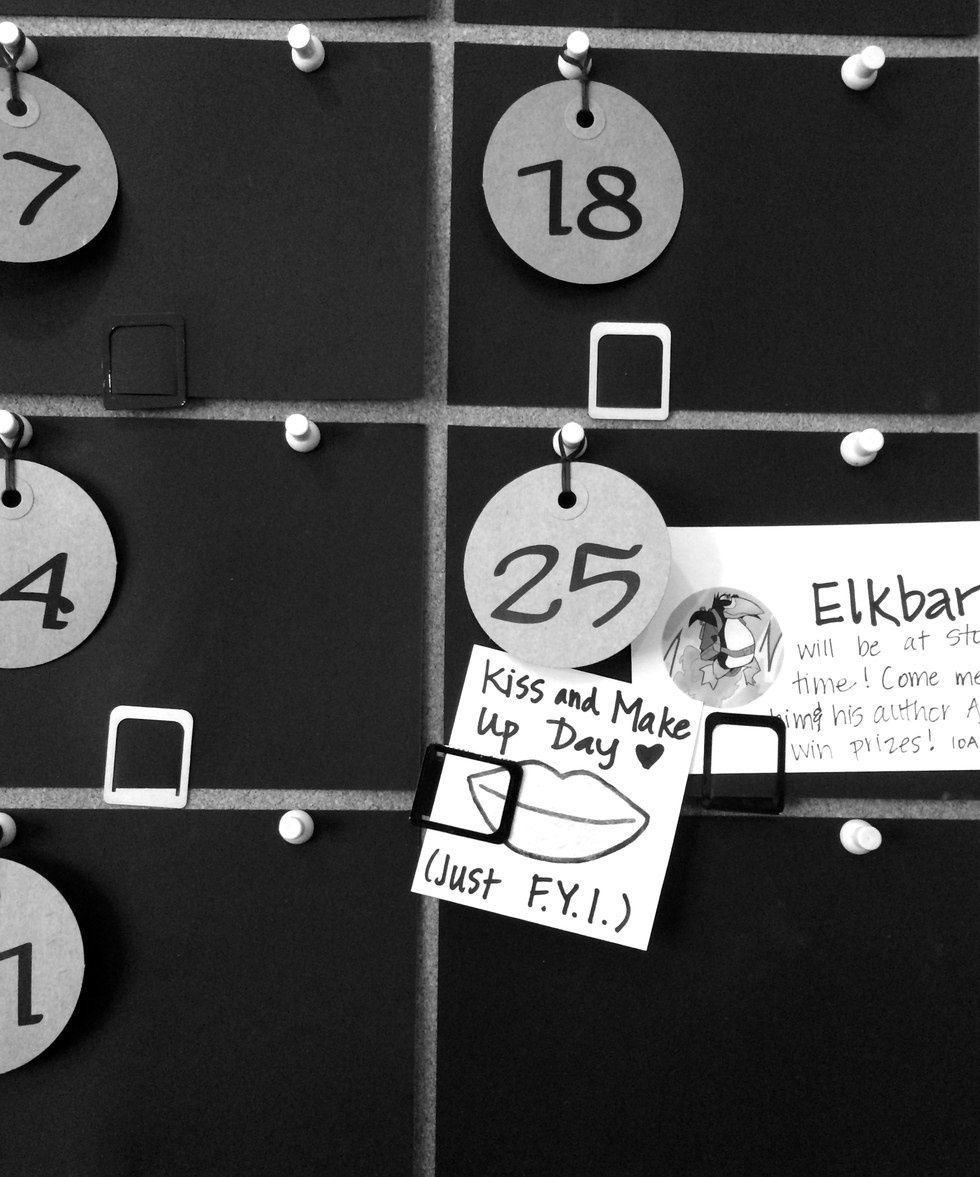 7
18
4
25
Elkbar
will be at sto
time! Come me
him & his author A
win prizes! 10A
Kiss and Make
Up Day ♥
(Just F.Y.I.)
1